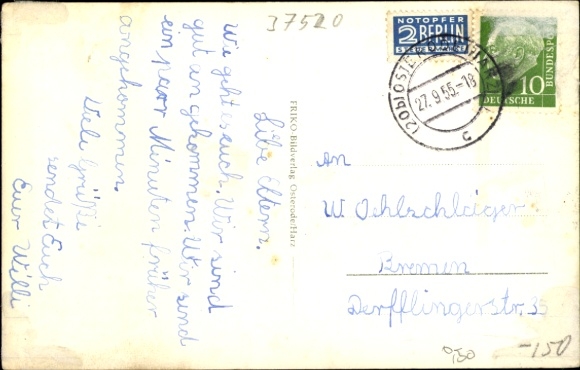 37520
Libe Eltern.
Wie geht es euch. Wir sind
gut angekommen. Wir sind
ein paar Minuten früher
angekommen.
Viele Grüße
sendet Euch
Euer Willi
ERIKO Bildverlag Osterode/Harz
NOTOPFER
2 BERLIN
STEUERMARKE
10
DEUTSCHE
BUNDESPOST
(20b) OSTERODE (HARZ)
27.9.55.-18
c
An
W Oehlschläger
Bremen
Derfflingerstr. 35
-150